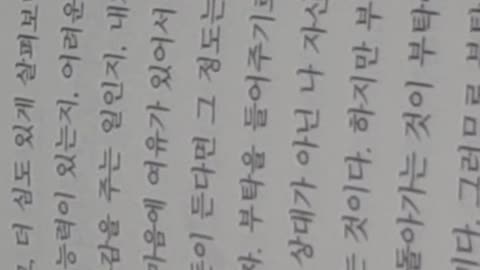 더 심도 있게 살펴보
능력이 있는지, 어려운
감을 주는 일인지, 내
마음에 여유가 있어서
든다면 그 정도는
다. 부탁을 들어주기로
상대가 아닌 나 자신
는 것이다. 하지만 부
돌아가는 것이 부탁
이다. 그러므로 부탁